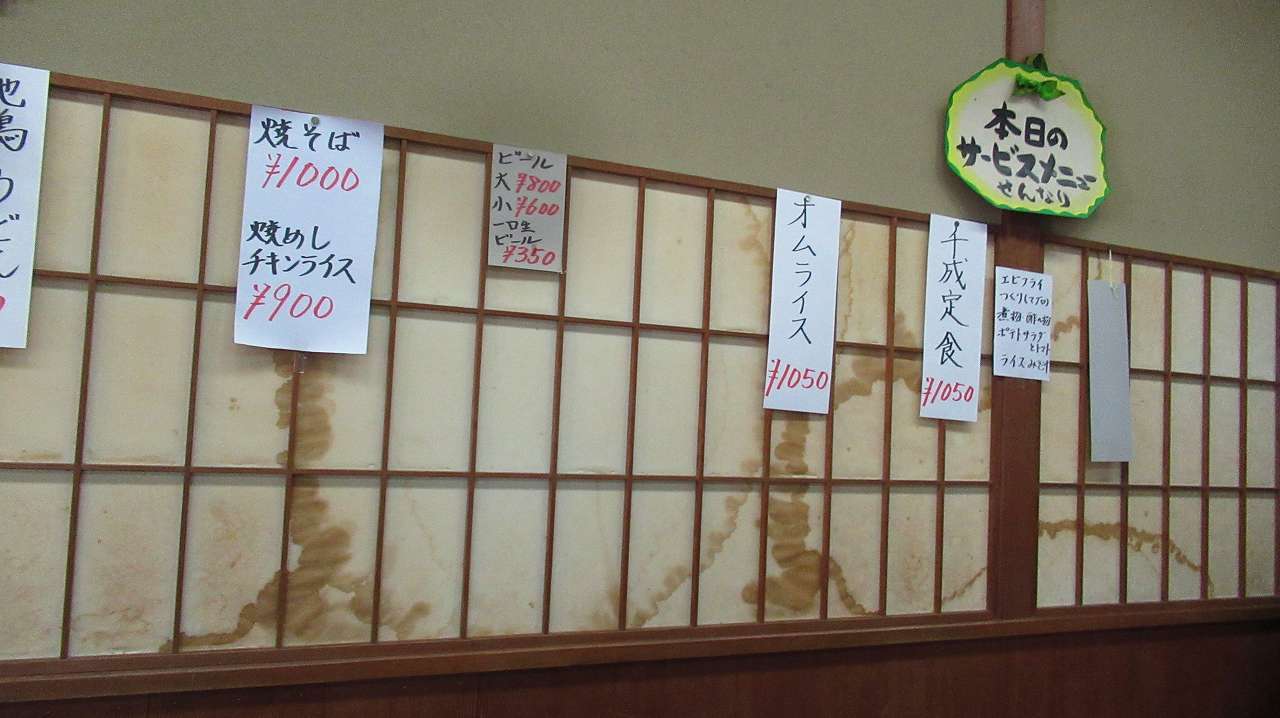 地鶏うどん
焼そば
¥1000
焼めし
チキンライス
¥900
ビール
大 ¥800
小 ¥600
一口生
ビール
¥350
オムライス
¥1050
千成定食
¥1050
本日の
サービスメニュー
せんなり
エビフライ
つくり(マグロ)
煮物 酢の物
ポテトサラダ
とトマト
ライス みそ汁